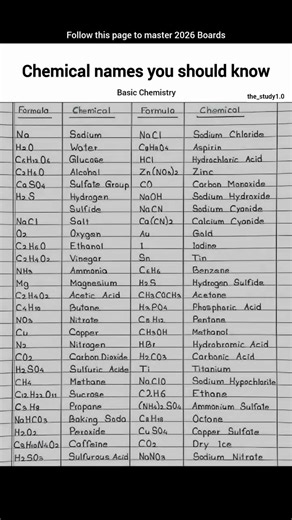 Follow this page to master 2026 Boards
Chemical names you should know
Basic Chemistry
the_study1.0
Formula Chemical Formula Chemical
Na Sodium NaCl Sodium Chloride
H2O Water C9H8O4 Aspirin
C6H12O6 Glucose HCl Hydrochloric Acid
C2H6O Alcohol Zn(NO3)2 Zinc
CaSO4 Sulfate Group CO Carbon Monoxide
H2S Hydrogen NaOH Sodium Hydroxide
Sulfide NaCN Sodium Cyanide
NaCl Salt Ca(CN)2 Calcium Cyanide
O2 Oxygen Au Gold
C2H6O Ethanol I Iodine
C2H4O2 Vinegar Sn Tin
NH3 Ammonia C6H6 Benzane
Mg Magnesium H2S Hydrogen Sulfide
C2H4O2 Acetic Acid CH3COCH3 Acetane
C4H10 Butane H3PO4 Phospharic Acid
NO3 Nitrate C5H12 Pentane
Cu Copper CH3OH Methanol
N2 Nitrogen HBr Hydrobromic Acid
CO2 Carbon Dioxide H2CO3 Carbonic Acid
H2SO4 Sulfuric Acide Ti Titanium
CH4 Methane NaClO Sodium Hypochlorite
C12H22O11 Sucrose C2H6 Ethane
C3H8 Propane (NH4)2SO4 Ammonium Sulfate
NaHCO3 Baking Soda C8H18 Octane
H2O2 Peroxide CuSO4 Copper Sulfate
C8H10N4O2 Caffeine CO2 Dry Ice
H2SO3 Sulfurous Acid NaNO3 Sodium Nitrate